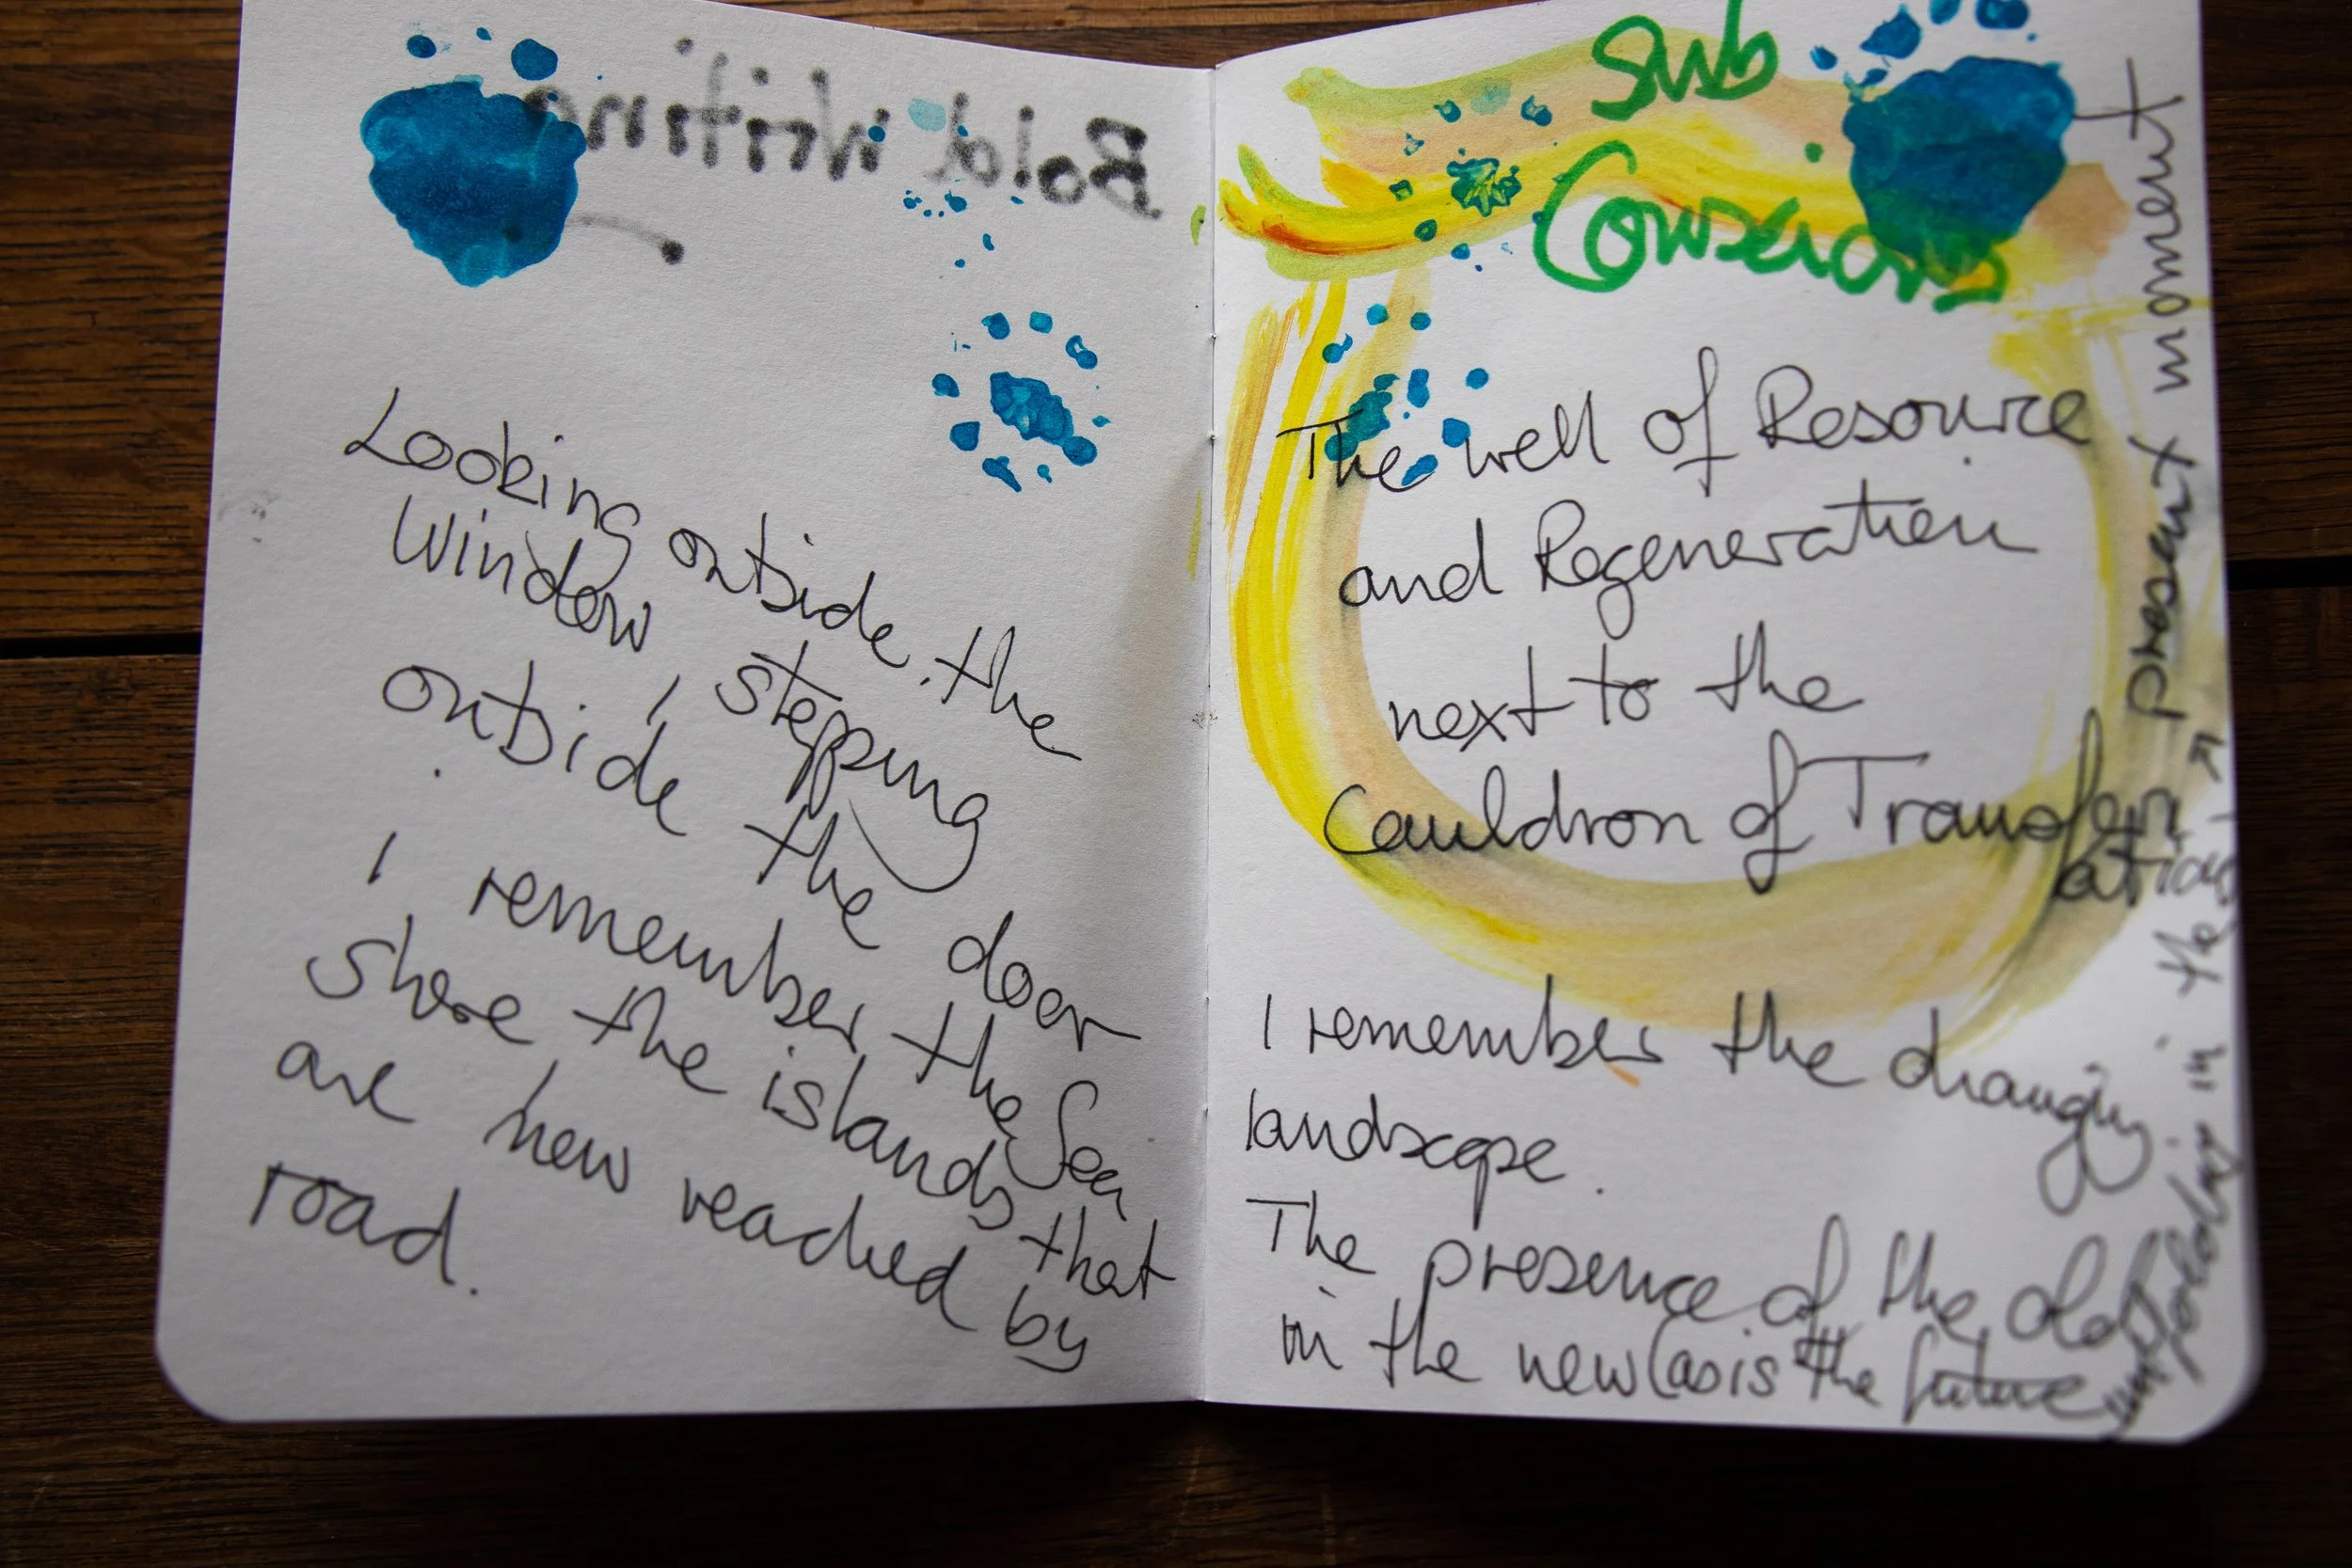 Bold Writing
Looking outside the
Window, stepping
outside the door
I remember the Sea
Shore the islands that
are now reached by
road.
Sub
Conscious
The well of Resource
and Regeneration
next to the
Cauldron of Transform
ations
I remember the changing
landscape.
The presence of the old
in the new (as is the future
unfolding in the present moment